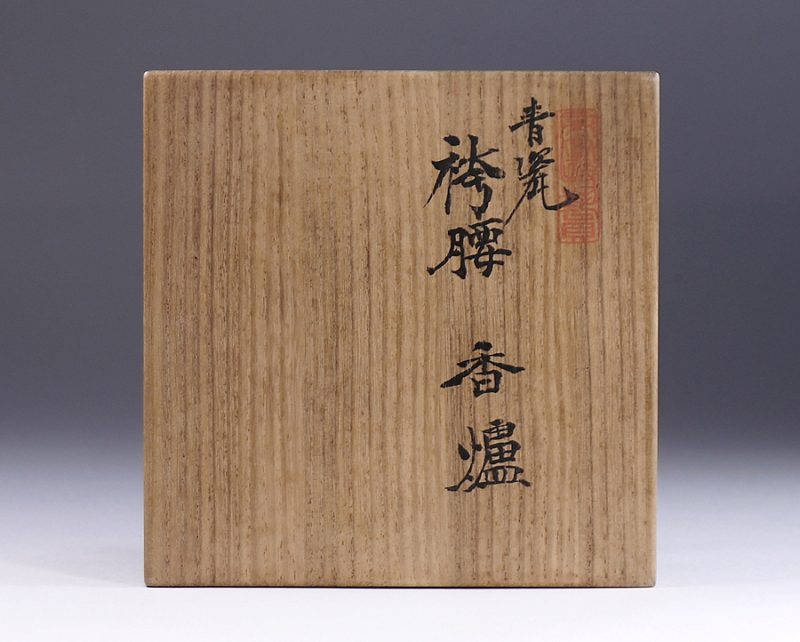 青瓷
袴腰 香爐